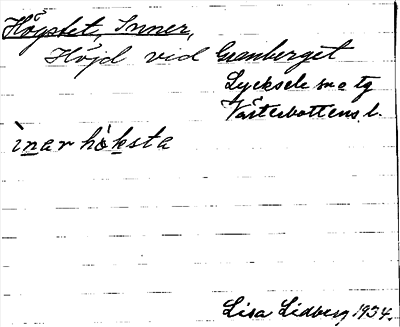 Högstet, Inner,
Höjd vid Granberget
Lycksele sn o tg
Västerbottens l.
ìnar hö̀ksta
Lisa Lidberg 1934.